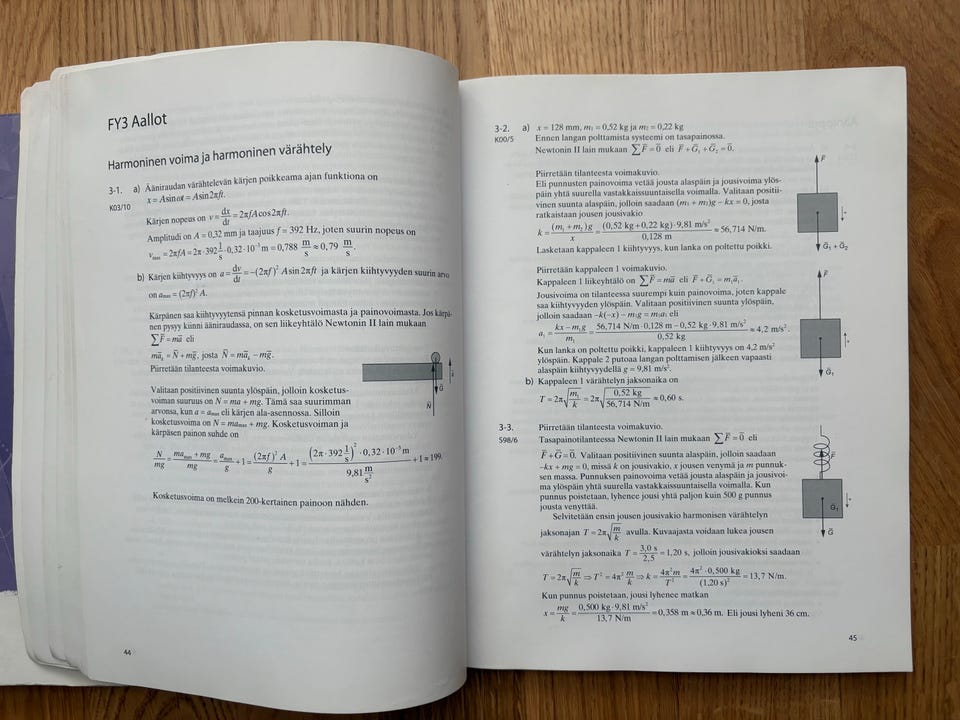 FY3 Aallot
Harmoninen voima ja harmoninen värähtely
3-1. a) Ääniraudan värähtelevän kärjen poikkeama ajan funktiona on
K03/10
x = Asinωt = Asin2πft.
Kärjen nopeus on v = dx/dt = 2πfAcos2πft.
Amplitudi on A = 0,32 mm ja taajuus f = 392 Hz, joten suurin nopeus on
vmax = 2πfA = 2π·392 1/s ·0,32·10⁻³ m = 0,788 m/s ≈ 0,79 m/s.
b) Kärjen kiihtyvyys on a = dv/dt = −(2πf)² Asin2πft ja kärjen kiihtyvyyden suurin arvo
on amax = (2πf)² A.
Kärpänen saa kiihtyvyytensä pinnan kosketusvoimasta ja painovoimasta. Jos kärpä-
nen pysyy kiinni ääniraudassa, on sen liikeyhtälö Newtonin II lain mukaan
∑F̅ = ma̅ eli
ma̅ₖ = N̅ + mg̅, josta N̅ = ma̅ₖ − mg̅.
Piirretään tilanteesta voimakuvio.
Valitaan positiivinen suunta ylöspäin, jolloin kosketus-
voiman suuruus on N = ma + mg. Tämä saa suurimman
arvonsa, kun a = amax eli kärjen ala-asennossa. Silloin
kosketusvoima on N = mamax + mg. Kosketusvoiman ja
kärpäsen painon suhde on
a̅
G̅
N̅
N/mg = (mamax + mg)/mg = amax/g + 1 = (2πf)² A/g + 1 = ((2π·392 1/s)² ·0,32·10⁻³ m)/(9,81 m/s²) + 1 ≈ 199.
Kosketusvoima on melkein 200-kertainen painoon nähden.
44
3-2. a) x = 128 mm, m₁ = 0,52 kg ja m₂ = 0,22 kg
K00/5
Ennen langan polttamista systeemi on tasapainossa.
Newtonin II lain mukaan ∑F̅ = 0̅ eli F̅ + G̅₁ + G̅₂ = 0̅.
Piirretään tilanteesta voimakuvio.
Eli punnusten painovoima vetää jousta alaspäin ja jousivoima ylös-
päin yhtä suurella vastakkaissuuntaisella voimalla. Valitaan positii-
vinen suunta alaspäin, jolloin saadaan (m₁ + m₂)g − kx = 0, josta
ratkaistaan jousen jousivakio
k = (m₁ + m₂)g/x = (0,52 kg + 0,22 kg)·9,81 m/s²/0,128 m ≈ 56,714 N/m.
Lasketaan kappaleen 1 kiihtyvyys, kun lanka on poltettu poikki.
F̅
+
G̅₁ + G̅₂
Piirretään kappaleen 1 voimakuvio.
Kappaleen 1 liikeyhtälö on ∑F̅ = ma̅ eli F̅ + G̅₁ = m₁a̅₁.
Jousivoima on tilanteessa suurempi kuin painovoima, joten kappale
saa kiihtyvyyden ylöspäin. Valitaan positiivinen suunta ylöspäin,
jolloin saadaan −k(−x) − m₁g = m₁a₁ eli
a₁ = (kx − m₁g)/m₁ = (56,714 N/m·0,128 m − 0,52 kg·9,81 m/s²)/0,52 kg ≈ 4,2 m/s².
Kun lanka on poltettu poikki, kappaleen 1 kiihtyvyys on 4,2 m/s²
ylöspäin. Kappale 2 putoaa langan polttamisen jälkeen vapaasti
alaspäin kiihtyvyydellä g = 9,81 m/s².
F̅
+
G̅₁
b) Kappaleen 1 värähtelyn jaksonaika on
T = 2π√(m₁/k) = 2π√(0,52 kg/56,714 N/m) ≈ 0,60 s.
3-3. Piirretään tilanteesta voimakuvio.
S98/6
Tasapainotilanteessa Newtonin II lain mukaan ∑F̅ = 0̅ eli
F̅ + G̅ = 0̅. Valitaan positiivinen suunta alaspäin, jolloin saadaan
−kx + mg = 0, missä k on jousivakio, x jousen venymä ja m punnuk-
sen massa. Punnuksen painovoima vetää jousta alaspäin ja jousivoi-
ma ylöspäin yhtä suurella vastakkaissuuntaisella voimalla. Kun
punnus poistetaan, lyhenee jousi yhtä paljon kuin 500 g punnus
jousta venyttää.
F̅
+
G₁
G̅
Selvitetään ensin jousen jousivakio harmonisen värähtelyn
jaksonajan T = 2π√(m/k) avulla. Kuvaajasta voidaan lukea jousen
värähtelyn jaksonaika T = 3,0 s/2,5 = 1,20 s, jolloin jousivakioksi saadaan
T = 2π√(m/k) ⇒ T² = 4π² m/k ⇒ k = 4π²m/T² = 4π²·0,500 kg/(1,20 s)² = 13,7 N/m.
Kun punnus poistetaan, jousi lyhenee matkan
x = mg/k = 0,500 kg·9,81 m/s²/13,7 N/m = 0,358 m ≈ 0,36 m. Eli jousi lyheni 36 cm.
45